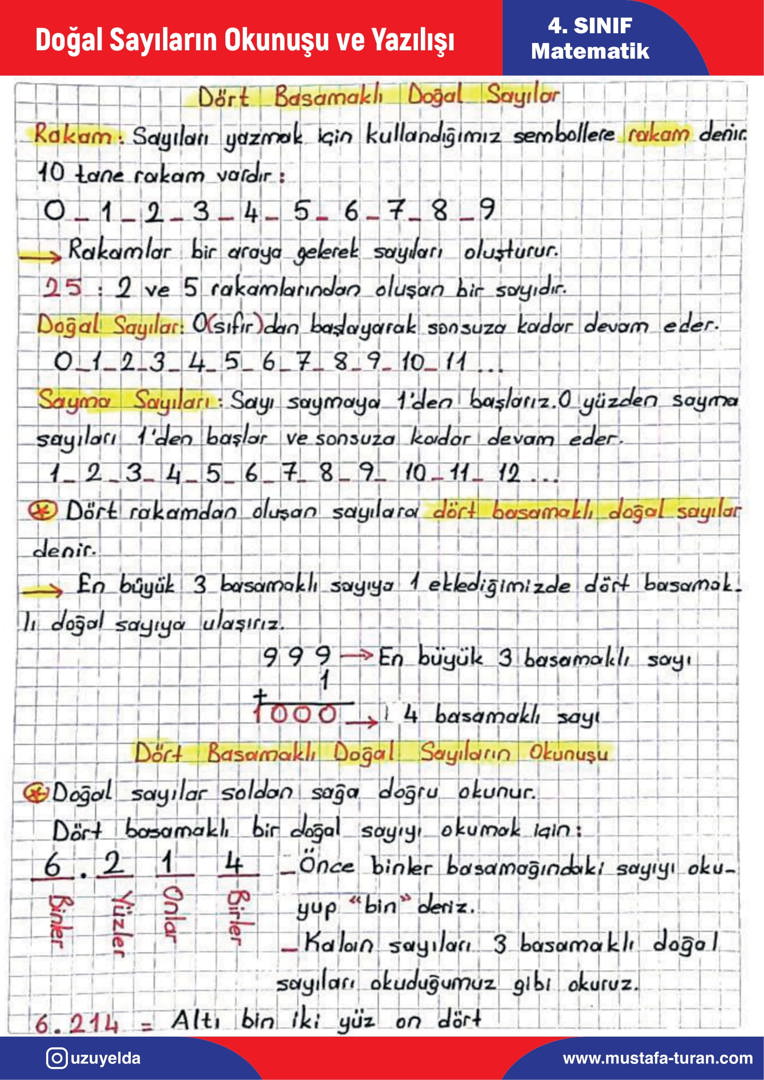 Doğal Sayıların Okunuşu ve Yazılışı
4. SINIF
Matematik
Dört Basamaklı Doğal Sayılar
Rakam: Sayıları yazmak için kullandığımız sembollere rakam denir.
10 tane rakam vardır:
0_1_2_3_4_5_6_7_8_9
→ Rakamlar bir araya gelerek sayıları oluşturur.
25 : 2 ve 5 rakamlarından oluşan bir sayıdır.
Doğal Sayılar: 0(sıfır)dan başlayarak sonsuza kadar devam eder.
0_1_2_3_4_5_6_7_8_9_10_11...
Sayma Sayıları: Sayı saymaya 1'den başlarız. O yüzden sayma
sayıları 1'den başlar ve sonsuza kadar devam eder.
1_2_3_4_5_6_7_8_9_10_11_12...
* Dört rakamdan oluşan sayılara dört basamaklı doğal sayılar
denir.
→ En büyük 3 basamaklı sayıya 1 eklediğimizde dört basamak-
lı doğal sayıya ulaşırız.
999 → En büyük 3 basamaklı sayı
1
+
1000 → 4 basamaklı sayı
Dört Basamaklı Doğal Sayıların Okunuşu
* Doğal sayılar soldan sağa doğru okunur.
Dört basamaklı bir doğal sayıyı okumak için:
6.214 _Önce binler basamağındaki sayıyı oku-
Binler Yüzler Onlar Birler yup "bin" deriz.
_Kalan sayıları 3 basamaklı doğal
sayıları okuduğumuz gibi okuruz.
6.214 = Altı bin iki yüz on dört
uzuyelda
www.mustafa-turan.com